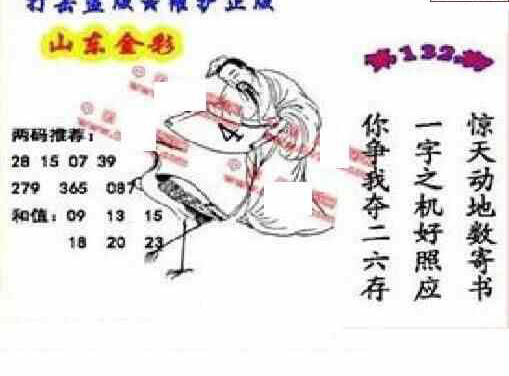 打击盗版 维护正版
山东金彩
132
两码推荐：
28 15 07 39
279 365 087
和值：09 13 15
18 20 23
4
惊天动地数寄书
一字之机好照应
你争我夺二六存